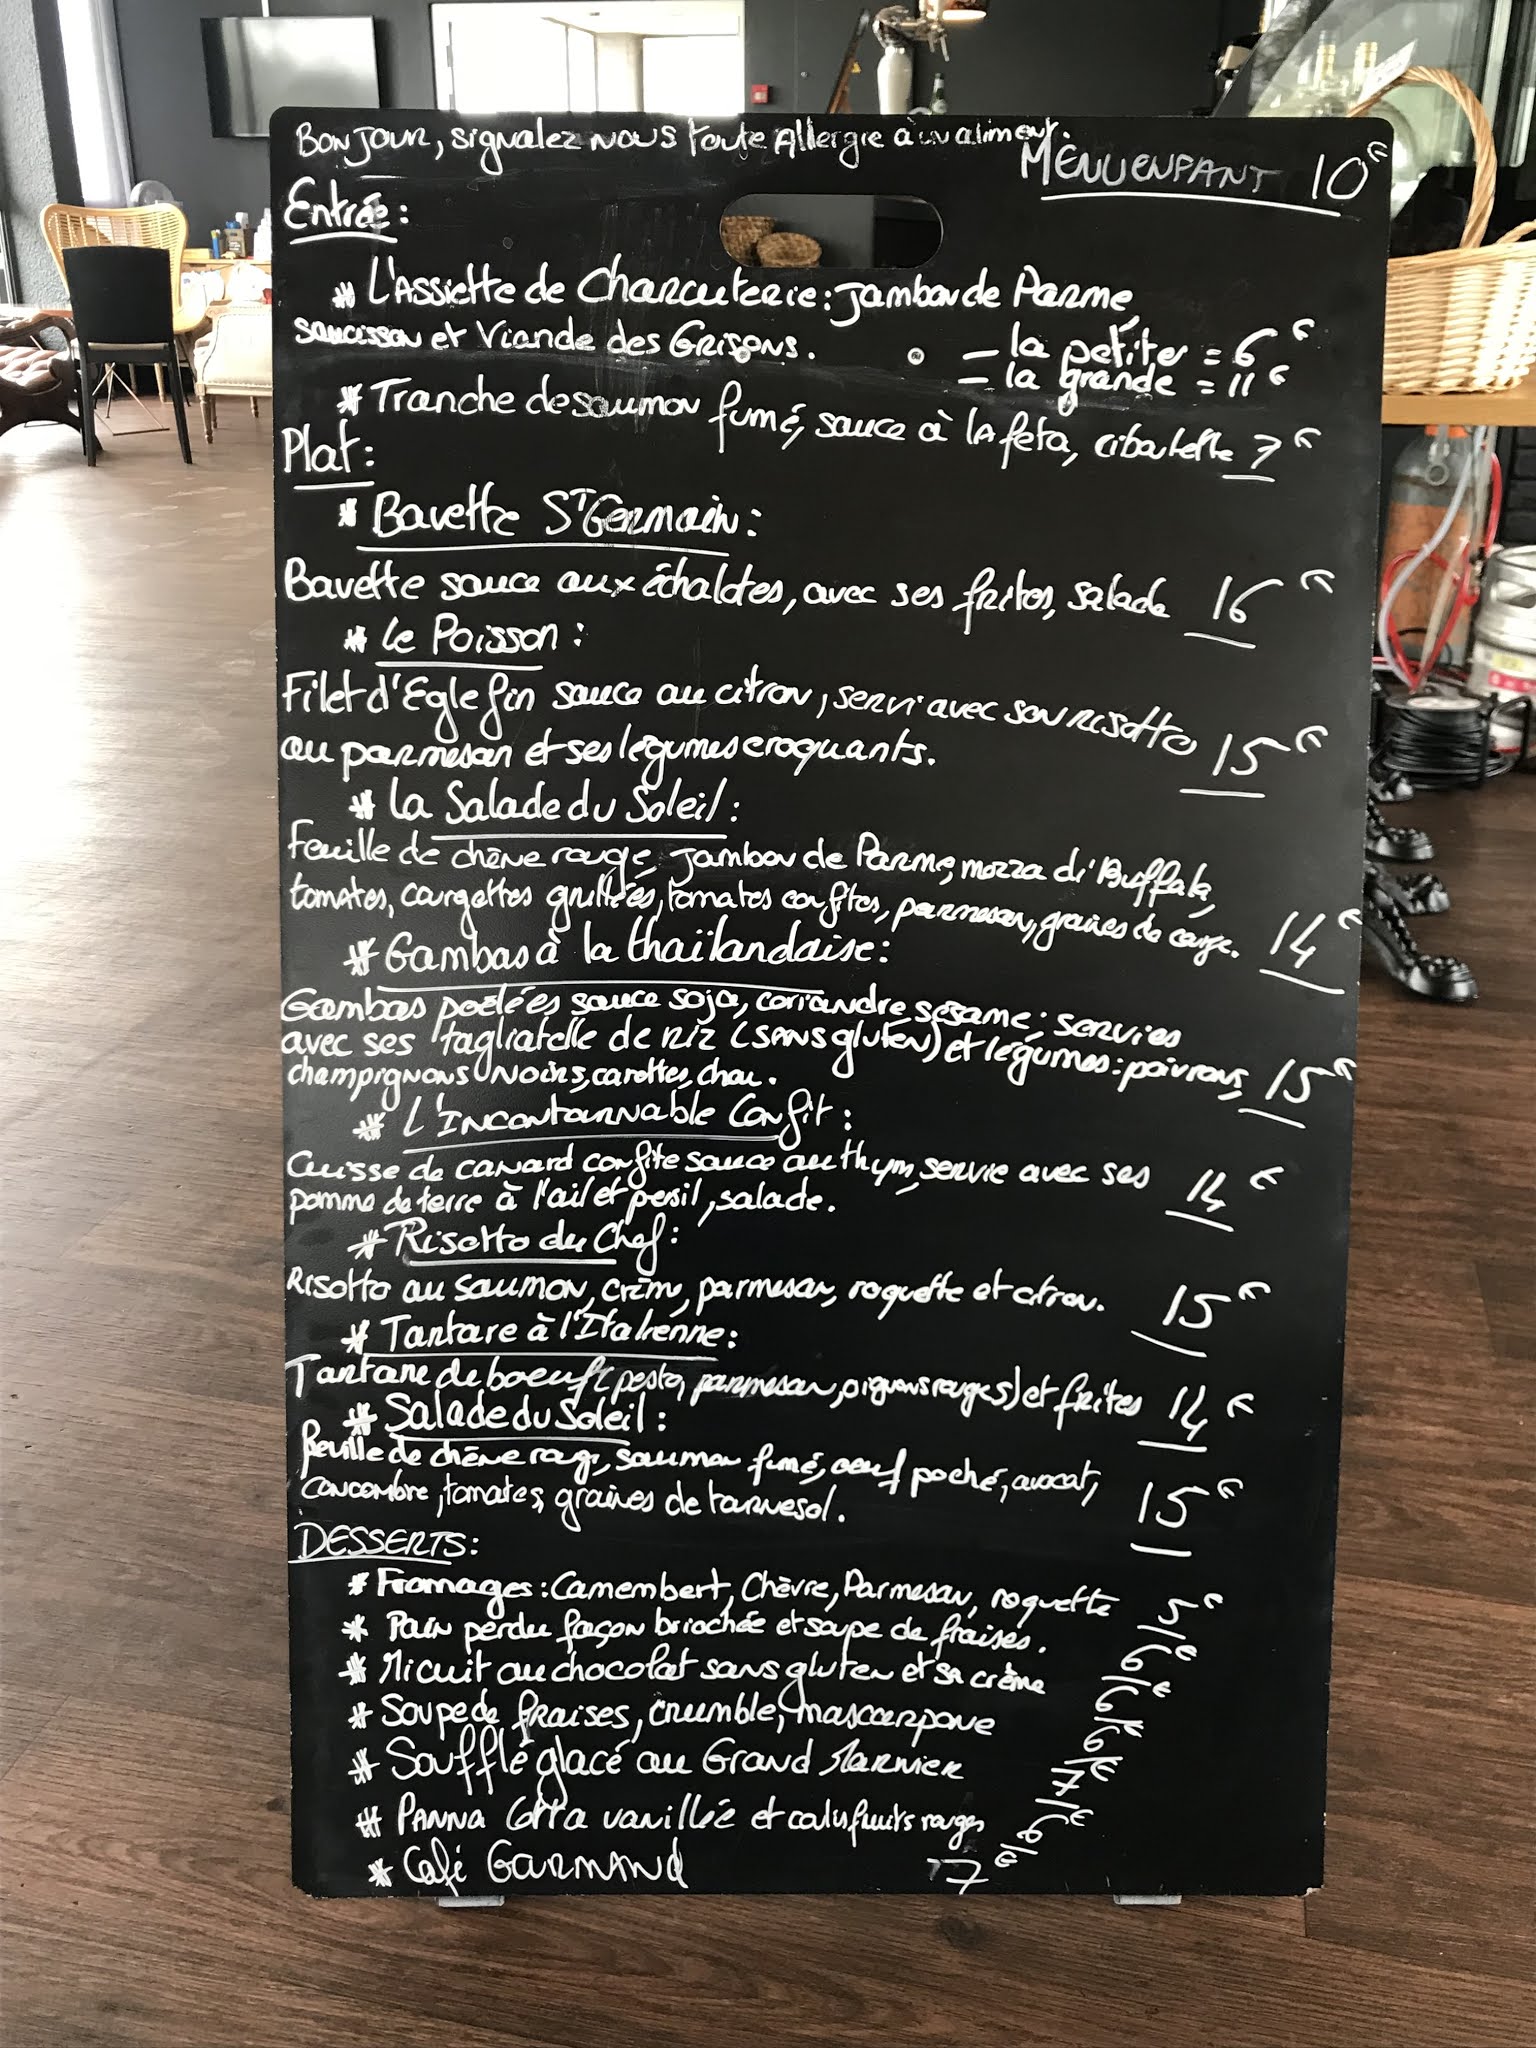 Bonjour, signalez nous toute Allergie à un aliment.
MENU ENFANT 10€
Entrée:
* L'Assiette de Charcuterie: Jambon de Parme,
saucisson et Viande des Grisons. - la petite = 6€
- la grande = 11€
* Tranche de saumon fumé, sauce à la feta, ciboulette 7€
Plat:
* Bavette St Germain:
Bavette sauce aux échalotes, avec ses frites, salade 16€
* Le Poisson:
Filet d'Eglefin sauce au citron, servi avec son risotto
au parmesan et ses légumes croquants. 15€
* La Salade du Soleil:
Feuille de chêne rouge, Jambon de Parme, mozza di Buffala,
tomates, courgettes grillées, tomates confites, parmesan, graines de courge. 14€
* Gambas à la thaïlandaise:
Gambas poêlées sauce soja, coriandre, sésame; servies
avec ses tagliatelle de riz (sans gluten) et légumes: poivrons,
champignons noirs, carottes, chou. 15€
* L'Incontournable Confit:
Cuisse de canard confite sauce au thym, servie avec ses
pomme de terre à l'ail et persil, salade. 14€
* Risotto du Chef:
Risotto au saumon, crème, parmesan, roquette et citron. 15€
* Tartare à l'Italienne:
Tartare de boeuf (pesto, parmesan, oignons rouges) et frites 14€
* Salade du Soleil:
feuille de chêne rouge, saumon fumé, oeuf poché, avocat,
concombre, tomates, graines de tournesol. 15€
DESSERTS:
* Fromages: Camembert, Chèvre, Parmesan, roquette 5€
* Pain perdu façon briochée et soupe de fraises. 6€
* Micuit au chocolat sans gluten et sa crème 6€
* Soupe de fraises, crumble, mascarpone 6€
* Soufflé glacé au Grand Marnier 7€
* Panna Cotta vanillée et coulis fruits rouges 6€
* Café Gourmand 7€